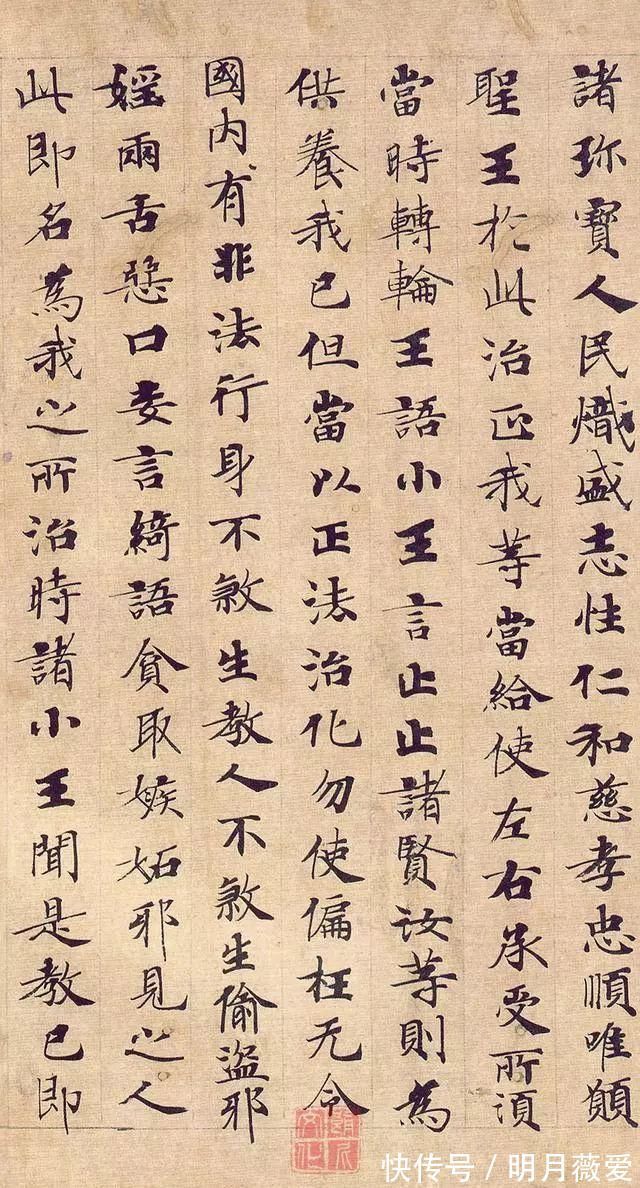 諸珎寳人民熾盛志性仁和慈孝忠順唯願
聖王扵此治㱏我䒭當給使左右承受所湏
當時轉輪王語小王言止止諸賢汝䒭則為
供養我已但當以正法治化勿使偏枉无令
國内有非法行身不煞生教人不煞生偷盗耶
婬兩舌惡口妄言綺語貪取嫉妬耶見之人
此即名為我之所治時諸小王聞是教已即
快传号/明月薇爱